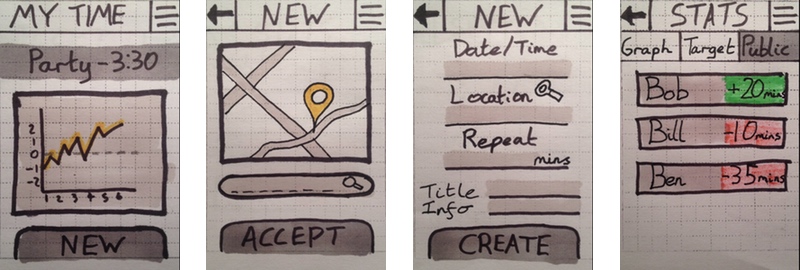 MY TIME
Party-3:30
2
1
0
-1
-2
1 2 3 4 5 6
NEW
NEW
ACCEPT
NEW
Date/Time
Location
Repeat
mins
Title
Info
CREATE
STATS
Graph Target Public
Bob +20mins
Bill -10mins
Ben -35mins